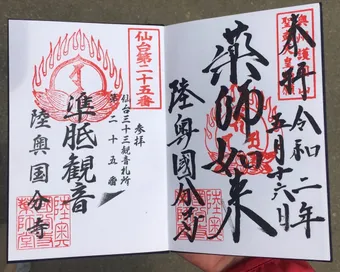 奉拝
令和二年
五月十六日
薬師如来
陸奥國分寺
仙台第二十五番
参拝
仙台三十三観音札所
第二十五番
準胝観音
陸奥国分寺